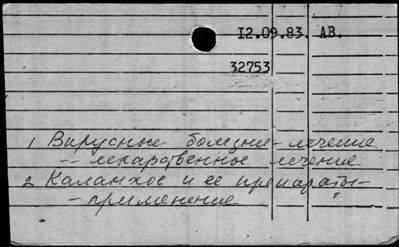 12.09.83. АВ.
32753
1 Вирусные болезни - лечение
-- лекарственное лечение
2 Каланхое и ее препараты -
- применение